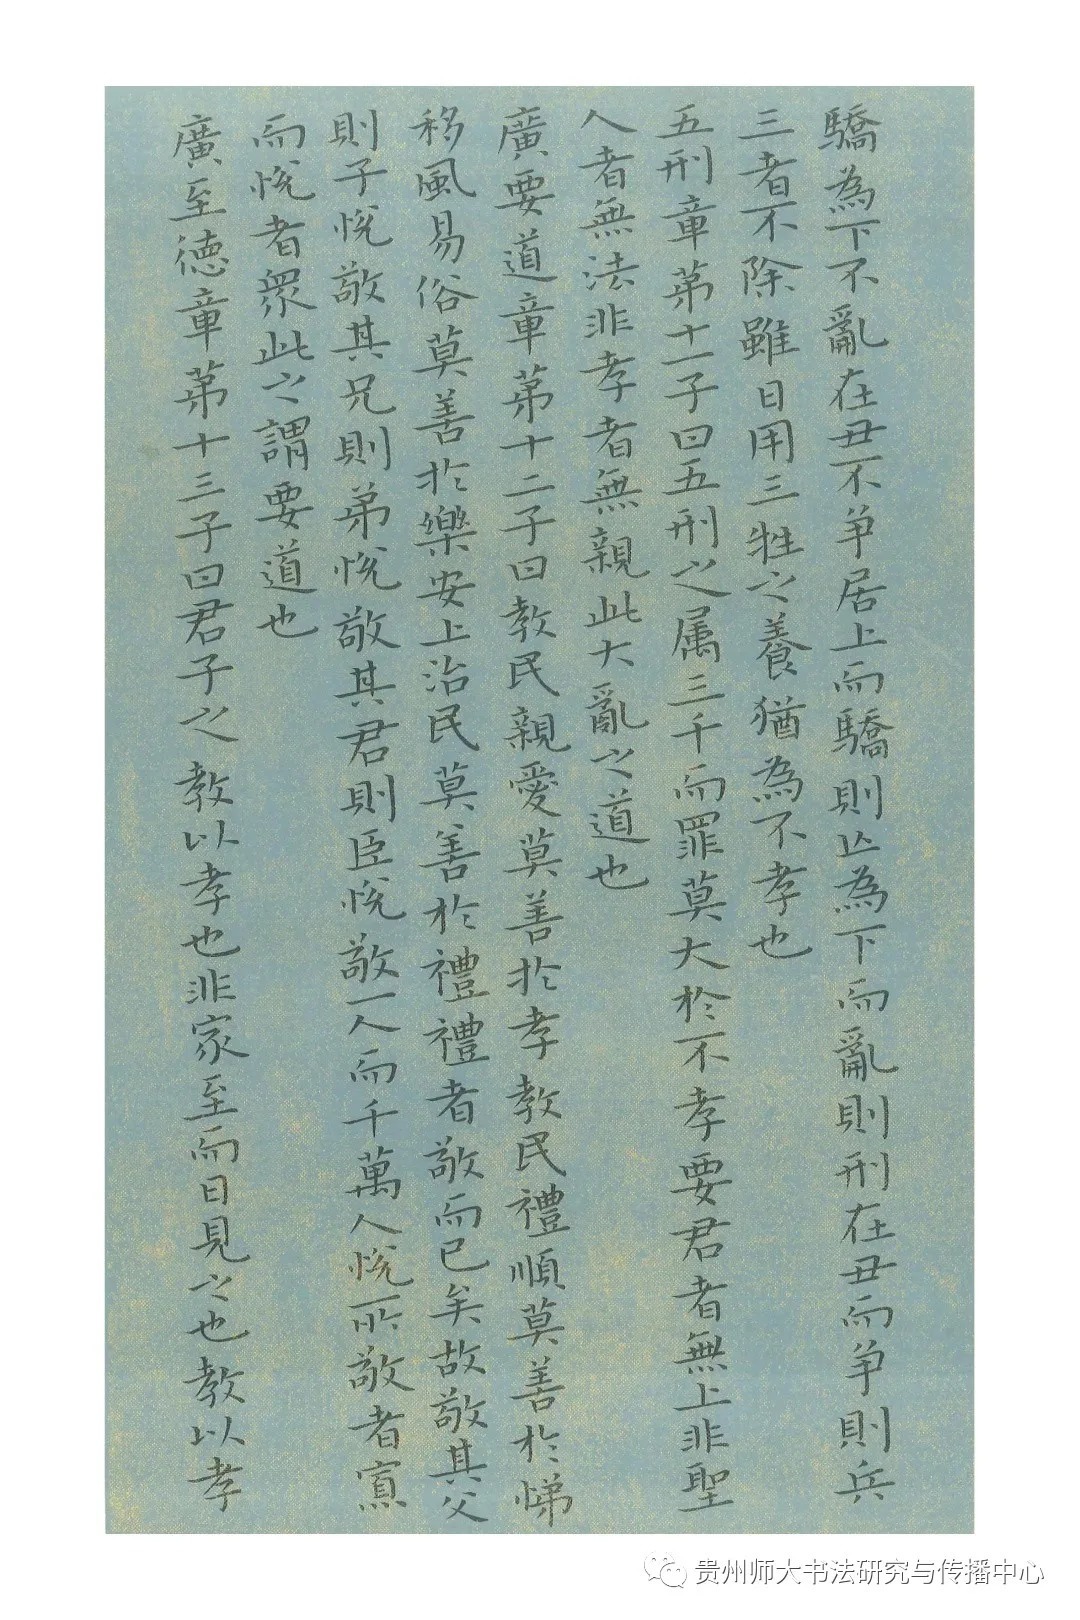 驕為下不亂在丑不争居上而驕則亡為下而亂則刑在丑而争則兵
三者不除雖日用三牲之養猶為不孝也
五刑章第十一子曰五刑之属三千而罪莫大於不孝要君者無上非聖
人者無法非孝者無親此大亂之道也
廣要道章第十二子曰教民親愛莫善於孝教民禮順莫善於悌
移風易俗莫善於樂安上治民莫善於禮禮者敬而已矣故敬其父
則子悅敬其兄則弟悅敬其君則臣悅敬一人而千萬人悅所敬者寡
而悅者眾此之謂要道也
廣至德章第十三子曰君子之教以孝也非家至而日見之也教以孝
贵州师大书法研究与传播中心